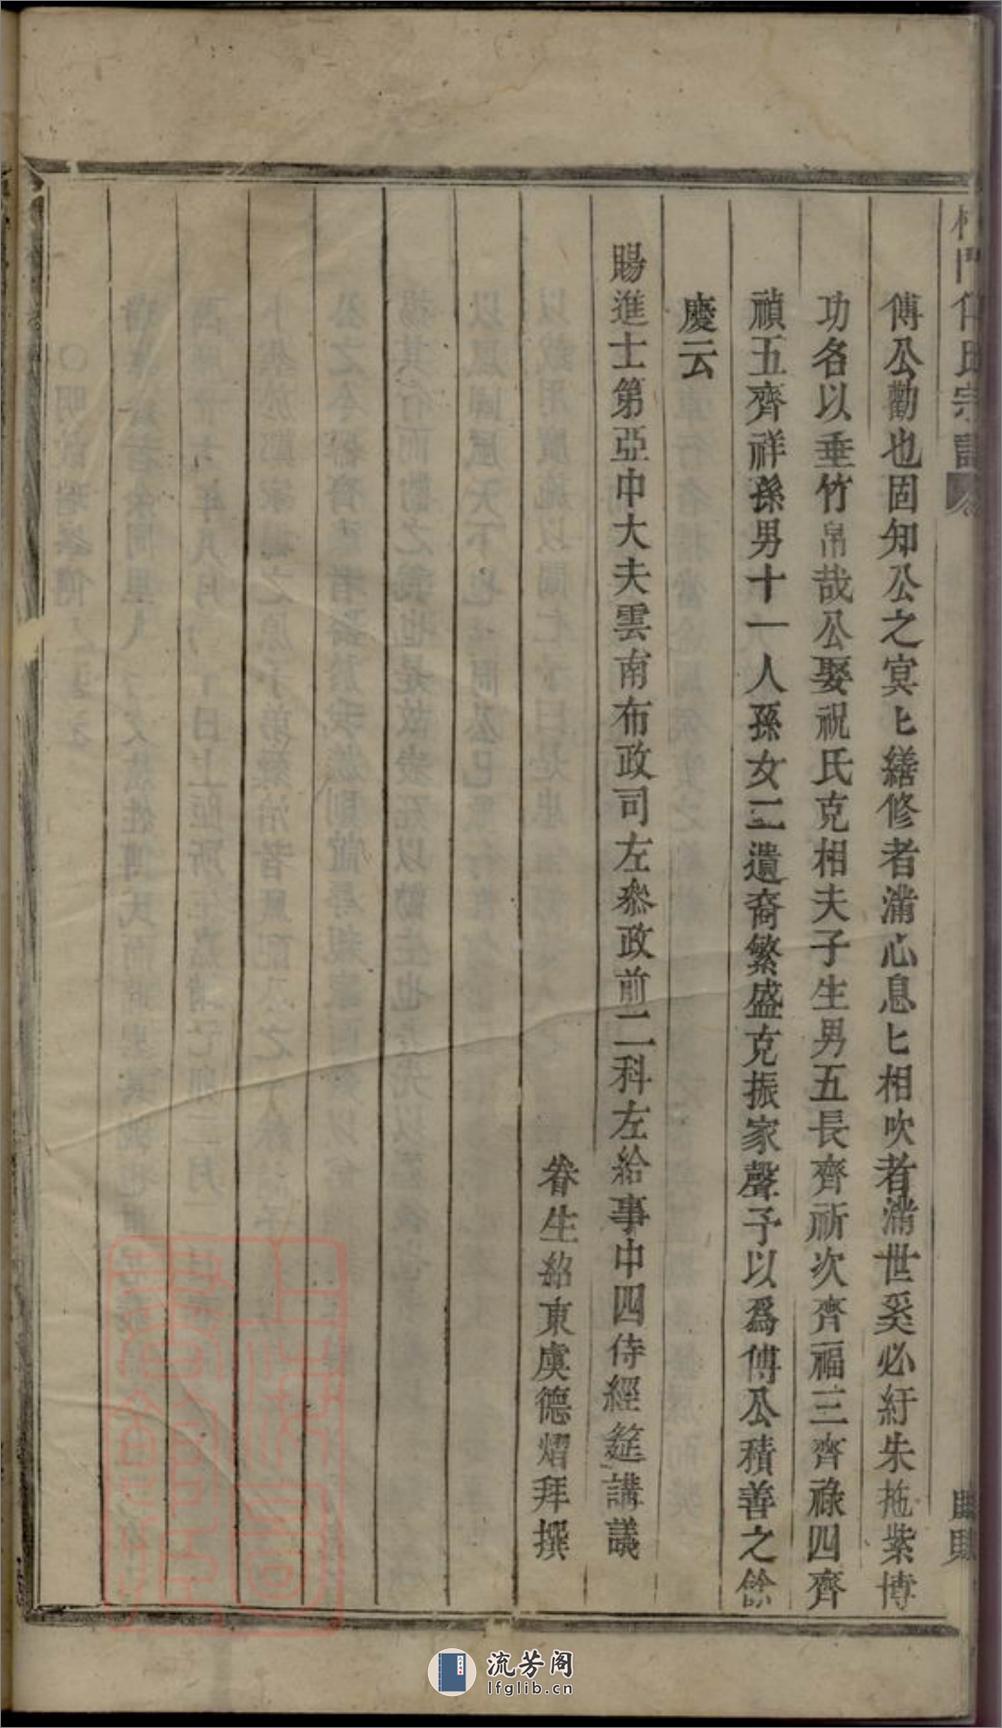 傅氏宗譜
傅公勸也固知公之冥匕繕修者滿心息匕相吹者滿世奚必紆朱拖紫博
功各以垂竹帛哉公娶祝氏克相夫子生男五長齊祈次齊福三齊祿四齊
禎五齊祥孫男十一人孫女二遺裔繁盛克振家聲予以爲傅公積善之餘
慶云
賜進士第亞中大夫雲南布政司左叅政前二科左給事中四侍經筵講議
眷生紹東虞德熠拜撰
流芳阁
lfglib.cn